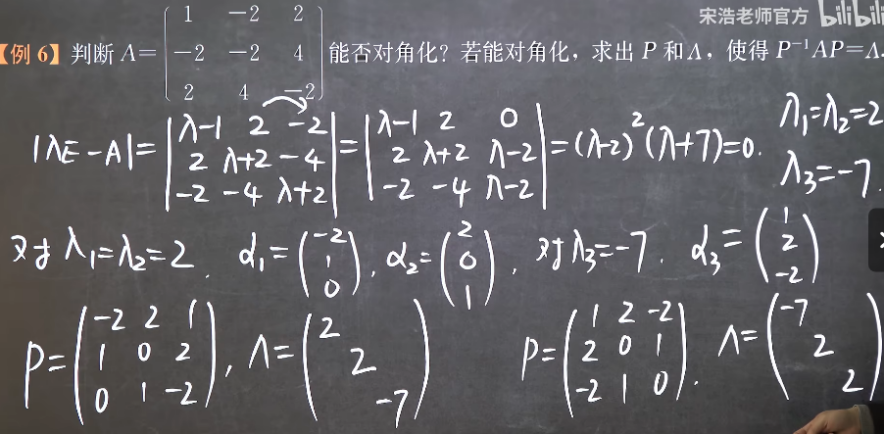 宋浩老师官方 bilibili
【例 6】判断 A= ( 1 -2 2 ; -2 -2 4 ; 2 4 -2 ) 能否对角化？若能对角化，求出 P 和Λ，使得 P⁻¹AP=Λ.
|λE-A|= | λ-1 2 -2 ; 2 λ+2 -4 ; -2 -4 λ+2 | = | λ-1 2 0 ; 2 λ+2 λ-2 ; -2 -4 λ-2 | =(λ-2)²(λ+7)=0. λ₁=λ₂=2
λ₃=-7.
对于 λ₁=λ₂=2. α₁= ( -2 ; 1 ; 0 ), α₂= ( 2 ; 0 ; 1 ), 对于 λ₃=-7. α₃= ( 1 ; 2 ; -2 )
P= ( -2 2 1 ; 1 0 2 ; 0 1 -2 ), Λ= ( 2 ; 2 ; -7 ) P= ( 1 2 -2 ; 2 0 1 ; -2 1 0 ). Λ= ( -7 ; 2 ; 2 )